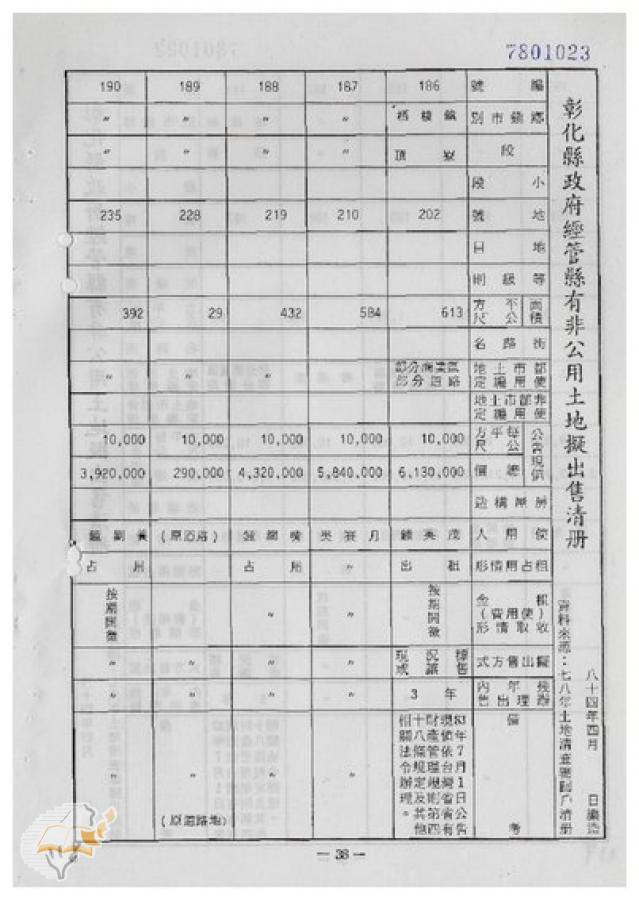 7801023
彰化縣政府經管縣有非公用土地擬出售清册
八十四年四月 日編造
編號 186 187 188 189 190
鄉鎮市別 〃 〃 〃 〃
段 頂 〃 〃 〃 〃
小段
地號 202 210 219 228 235
地目
等級則
面積 平方公尺 613 584 432 29 392
街路名
都市土地使用編定 部分商業區 部分道路 〃 〃 〃
非都市土地使用編定
公告現值 每平方公尺 10,000 10,000 10,000 10,000 10,000
總價 6,130,000 5,840,000 4,320,000 290,000 3,920,000
房屋構造
使用人 (原道路)
租占用情形 出租 〃 占用 占用
租金(使用費)收取情形 按期開徵 〃 〃 按期開徵
擬出售方式 現況標售或讓售 〃 〃 〃 〃
幾年內辦理出售 3年 〃 〃 〃 〃
備考 83年7月1日公告現值依台灣省省有財產管理規則第四十八條規定及其他相關法令辦理。 〃 〃 (原道路地) 〃
— 38 —